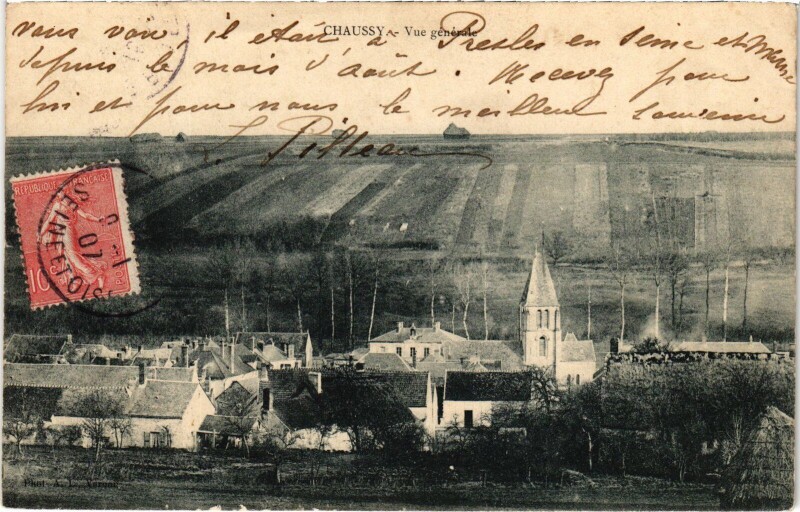 CHAUSSY - Vue générale
vous voir, il était à Presles en Seine et Marne
depuis le mois d'août. Recevez pour
lui et pour nous le meilleur souvenir
L. Pilleau
REPUBLIQUE FRANÇAISE
10c
POSTES
SEINE ET OISE
07
Phot. A. L.